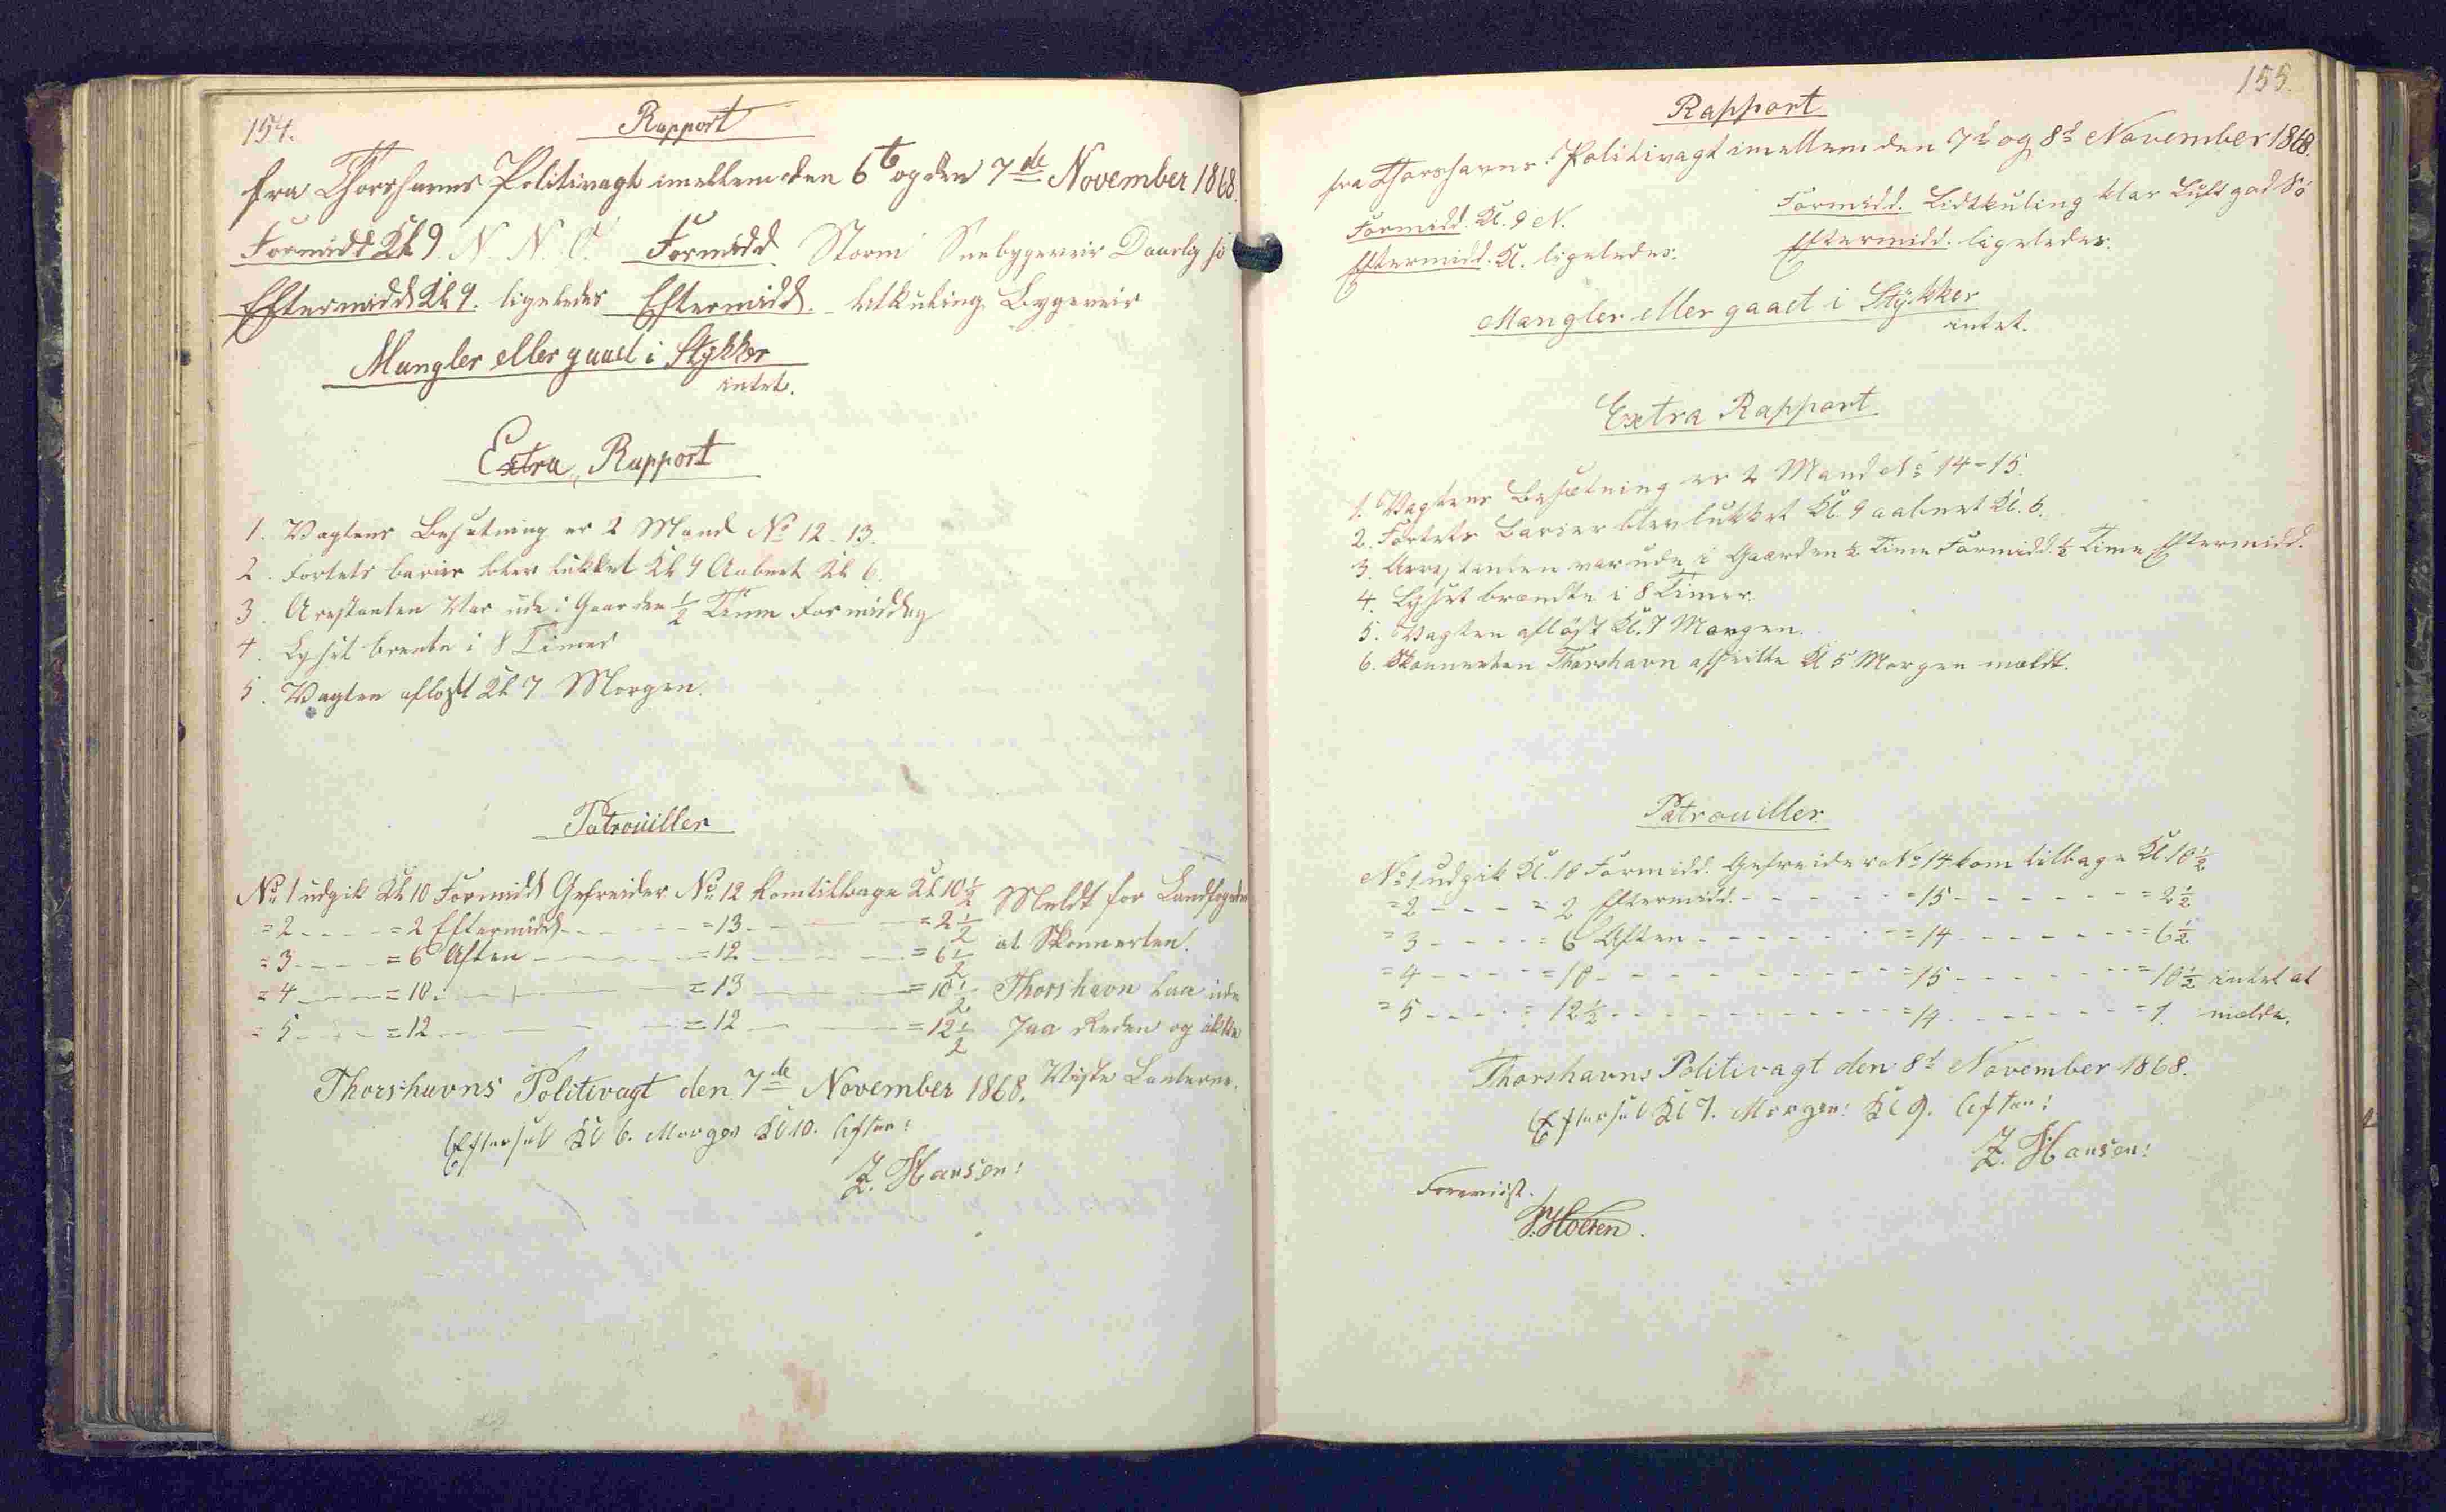 154.
Rapport
fra Thorshavns Politivagt imellem den 6t og den 7de November 1868.
Formidd Kl 9. N. N. O. Formidd Storm Sneebygeveir Daarlig sö
Eftermidd Kl 9. ligeledes Eftermidd. - Utkuling Bygeveir
Mangler eller gaaet i Stykker
intet.
Extra, Rapport
1. Vagtens Besetning er 2 Mand No 12-13.
2. Fortets barier blev lukket Kl 9 Aabnet Kl 6.
3. Arestanten Var ude i Gaarden 1/2 Time Formiddag
4. Lyset brente i 8 Timer
5. Vagten aflöst Kl 7 Morgen.
Patrouiller
No 1 udgik Kl 10 Formidd Gefreider No 12 kom tilbage Kl 10 1/2 Meldt for Landfogden
=2 - - - - =2 Eftermidd - - - - =13 - - - - =2 1/2 at Skonnerten
=3 - - - - =6 Aften - - - - =12 - - - - =6 1/2
=4 - - - - =10. - - - - =13 - - - - =10 1/2 Thorshavn laa ude
=5 - - - - =12 - - - - =12 - - - - =12 1/2 paa Reden og ikke
Thorshavns Politivagt den 7de November 1868. Viste Lanterne.
Eftersét Kl 6. Morgen Kl 10. Aften:
Z. Hansen:
155.
Rapport
fra Thorshavns Politivagt imellem den 7d og 8d November 1868.
Formidd. Kl. 9 N. Formidd. Lidtkuling klar Luft god Sö
Eftermidd. Kl. ligeledes. Eftermidd. ligeledes.
Mangler eller gaaet i Stykker
intet.
Extra Rapport
1. Vagtens Besætning er 2 Mand No 14-15.
2. Fortets Barier blev lukket Kl. 9 aabnet Kl. 6.
3. Arrestanten var ude i Gaarden 1/2 Time Formidd. 1/2 Time Eftermidd.
4. Lyset brændte i 8 Timer.
5. Vagten aflöst Kl. 7 Morgen.
6. Skonnerten Thorshavn afseilte Kl 5 Morgen mældt.
Patrouiller
No 1. udgik Kl. 10 Formidd. Gefreider No 14 kom tilbage Kl. 10 1/2
=2 - - - = 2 Eftermidd. - - - - =15 - - - - =2 1/2
=3 - - - - =6 Aften - - - - =14 - - - - =6 1/2
=4 - - - - =10 - - - - =15 - - - - =10 1/2 intet at
=5 - - - - =12 1/2 - - - - =14 - - - - =1. mælde.
Thorshavns Politivagt den 8d November 1868.
Eftersét Kl 7. Morgen: Kl 9. Aften:
Z. Hansen:
Foreviist.